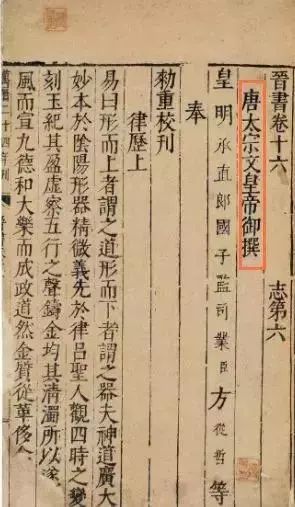 晉書卷十六 志第六
唐太宗文皇帝御撰
皇明承直郎國子監司業臣方從哲等
奉
勑重校刊
律歷上
易曰形而上者謂之道形而下者謂之器夫神道廣大
妙本於陰陽形器精微義先於律呂聖人觀四時之變
刻玉紀其盈虛察五行之聲鑄金均其清濁所以遂
風而宣九德和大樂而成政道然金質從革侈弇